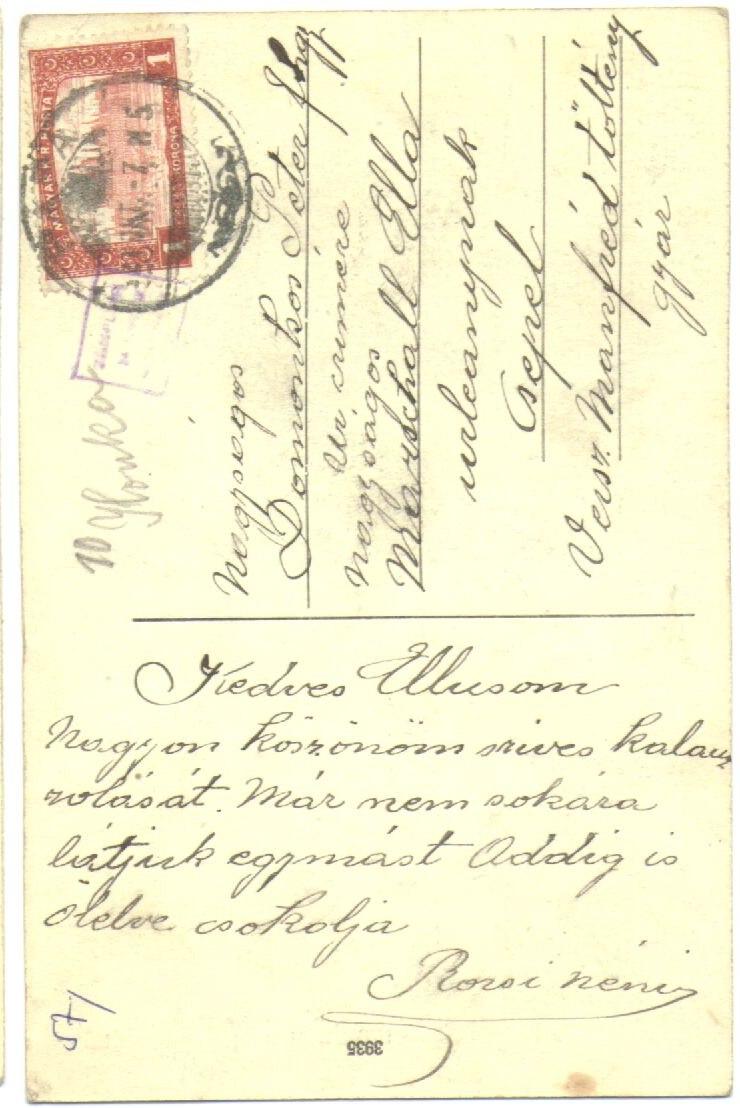 MAGYAR KIR. POSTA
1 KORONA 1
10 Ilonka
Nagyságos
Domonkos Péter
Úr címére
Nagyságos
Marschall Ella
urleanynak
Csepel
Veisz Manfréd töltény
gyár
Kedves Ellusom
Nagyon köszönöm szives kalau
zolását. Már nem sokára
látjuk egymást Addig is
ölelve csokolja
Rozsi néni
57/
3935